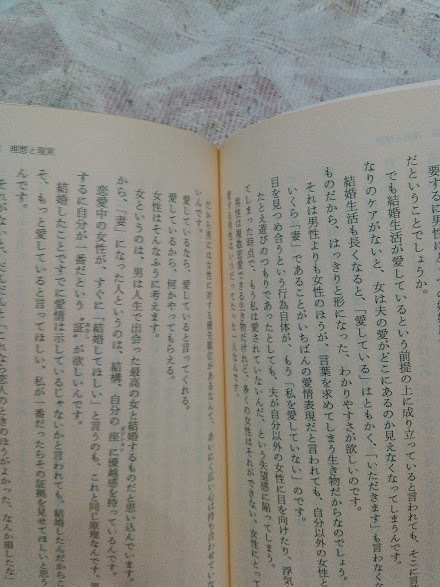 要するに男性にとっての結
だということでしょうか。
でも結婚生活が愛しているという前提の上に成り立っていると言われても、そこに言
なりのケアがないと、女は夫の愛がどこにあるのか見えなくなってしまうんです。
結婚生活も長くなると、「愛している」はともかく、「いただきます」も言わなく
ものだから、はっきりと形になった、わかりやすさが欲しいのです。
それは男性よりも女性のほうが、言葉を求めてしまう生き物だからなのでしょう。
いくら「妻」であることがいちばんの愛情表現だと言われても、自分以外の女性と
目を見つめ合うという行為自体が、もう「私を愛していない」のです。
たとえ遊びのつもりであったとしても、夫が自分以外の女性に目を向けたり、浮気
てしまった時点で、もう私は愛されていないんだ、という失望感に陥ってしまう。
男性は複数恋愛できる生き物だけれど、多くの女性はそれができない。女性にとって
理想と現実
いんです。
愛しているなら、愛していると言ってくれる。
愛しているから、何かやってもらえる。
女性はそんなふうに考えます。
女というのは、男は人生で出会った最高の女と結婚するものだと思い込んでいます。
から、「妻」になった人というのは、結構、自分の「座」に優越感を持っているんです。
恋愛中の女性が、すぐに「結婚してほしい」と言うのも、これと同じ原理なんです。要
するに自分が一番だという〝証〟が欲しいんです。
結婚したことですでに愛情は示しているじゃないかと言われても、結婚したんだからこ
そ、もっと愛していると言ってほしい、私が一番だったらその証拠を見せてほしいと思う
んです。
それがないと、だんだんと「これなら恋人のときのほうがよかった、なんか損したな」